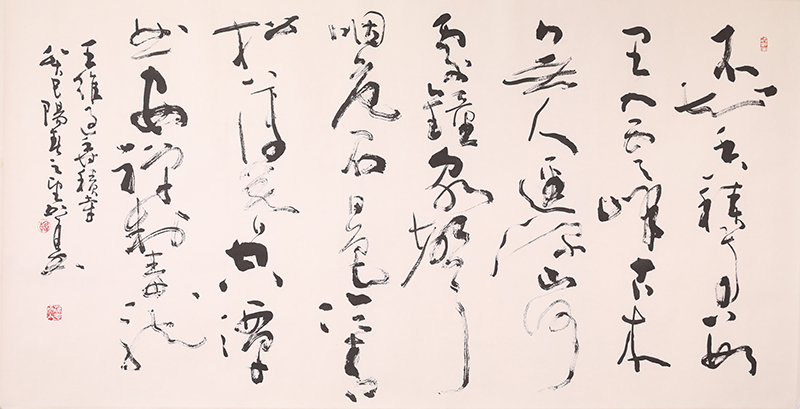 不知香積寺數
里入雲峰古木
無人逕深山何
處鐘泉聲
咽危石日色冷青
松薄暮空潭
曲安禪制毒龍
王維過香積寺
癸巳陽春之望